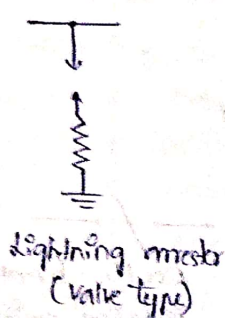 Lightning arrestor
(valve type)